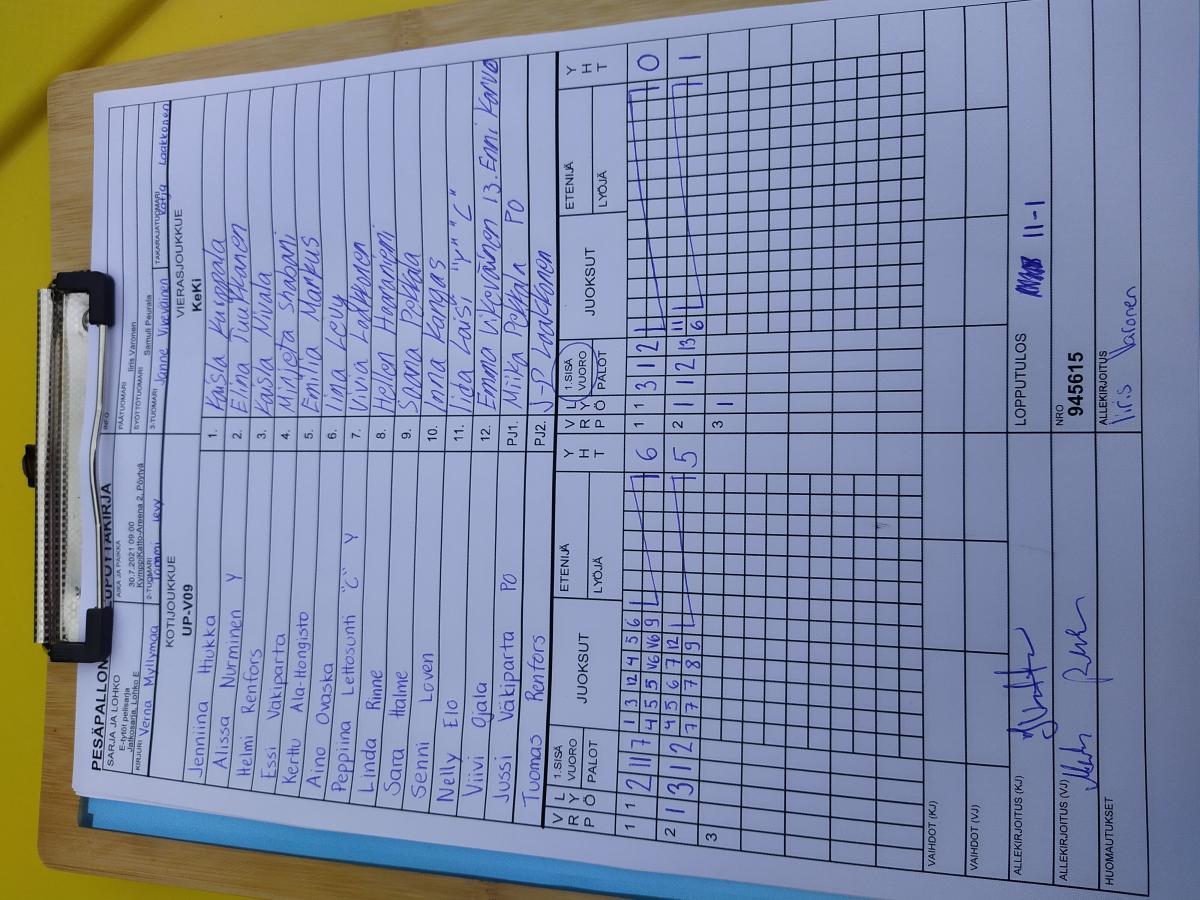 PESÄPALLON
SARJA JA LOHKO
E-tytöt pelisarja
Jatkosarja, Lohko E
AIKA JA PAIKKA
30.7.2021 09:00
KymppiKatto-Areena 2, Pöytyä
INFO
PÄÄTUOMARI Iiris Varonen
SYÖTTÖTUOMARI Samuli Peurala
KIRJURI Verna Myllymaa
2-TUOMARI Tommi Levy
3-TUOMARI Janne Vikeväinen
TAKARAJATUOMARI Katja Laakkonen
KOTIJOUKKUE
UP-V09
VIERASJOUKKUE
KeKi
Jenniina Hiukka 1. Kaisla Kuispala
Alissa Nurminen Y 2. Eina Tuukkanen
Helmi Renfors 3. Kaisla Nivala
Essi Väkiparta 4. Minjeta Shabani
Kerttu Ala-Hongisto 5. Emilia Markus
Aino Ovaska 6. Iina Levy
Peppiina Lettosunti "C" Y 7. Vivia Laakkonen
Linda Rinne 8. Helen Haraniemi
Sara Halme 9. Saana Pekkala
Senni Loven 10. Inna Kangas
Nelly Elo 11. Iida Laisi "Y" "C"
Viivi Ojala 12. Emma Vikeväinen 13. Enni Karvo
Jussi Väkiparta PO PJ1. Miika Pekkala PO
Tuomas Renfors PJ2. J-P Laakkonen
VRP LYÖ 1.SISÄ VUORO PALOT JUOKSUT ETENIJÄ LYÖJÄ YHT
VRP LYÖ 1.SISÄ VUORO PALOT JUOKSUT ETENIJÄ LYÖJÄ YHT
1 1 2 11 7 1 3 12 4 5 6 6 1 1 3 12 0
4 5 5 V6 V6 9
2 1 3 1 2 4 5 6 7 12 5 2 1 1 2 13 11 1
7 7 7 8 9 6
3 3 1
VAIHDOT (KJ)
VAIHDOT (VJ)
ALLEKIRJOITUS (KJ)
LOPPUTULOS 11-1
ALLEKIRJOITUS (VJ)
NRO
945615
HUOMAUTUKSET
ALLEKIRJOITUS
Iiris Varonen